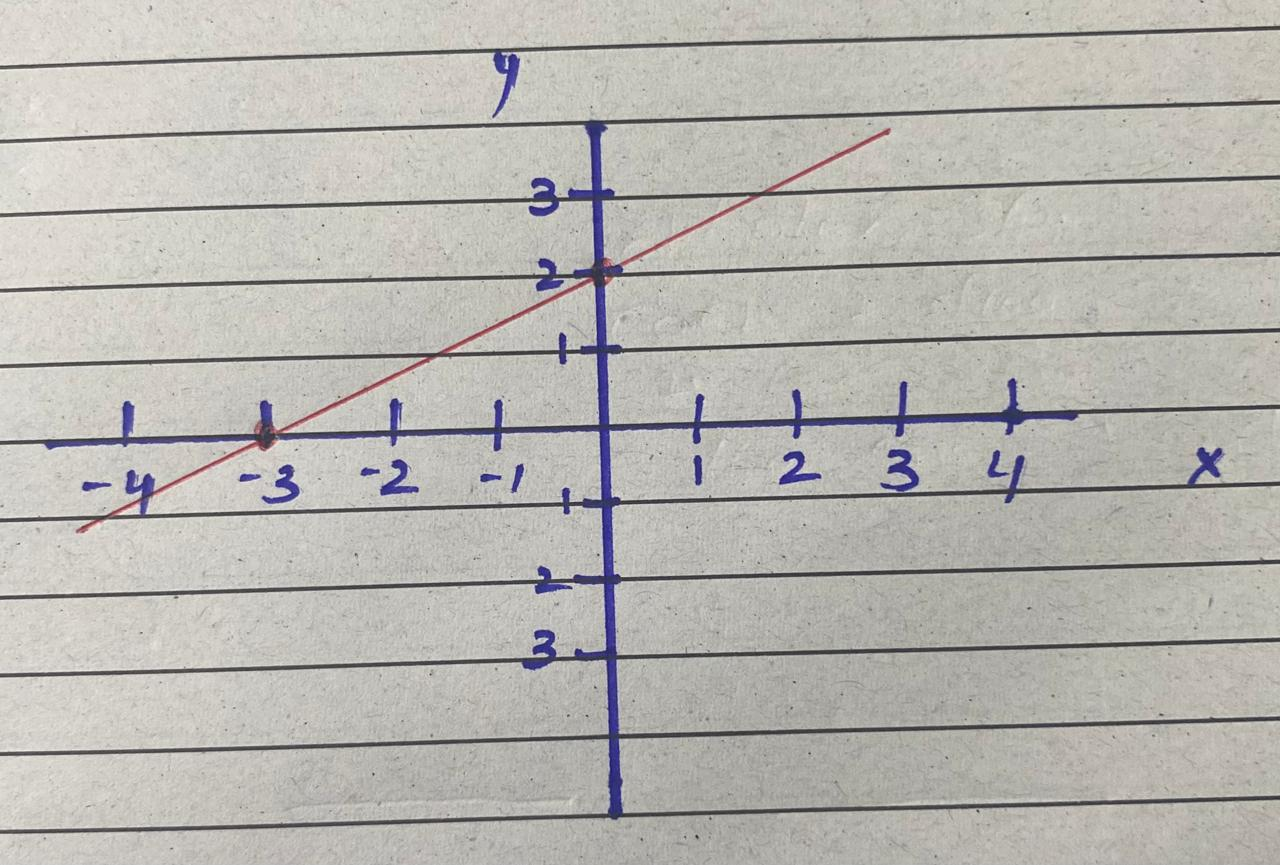 y
3
2
1
-4 -3 -2 -1 1 2 3 4 x
1
2
3